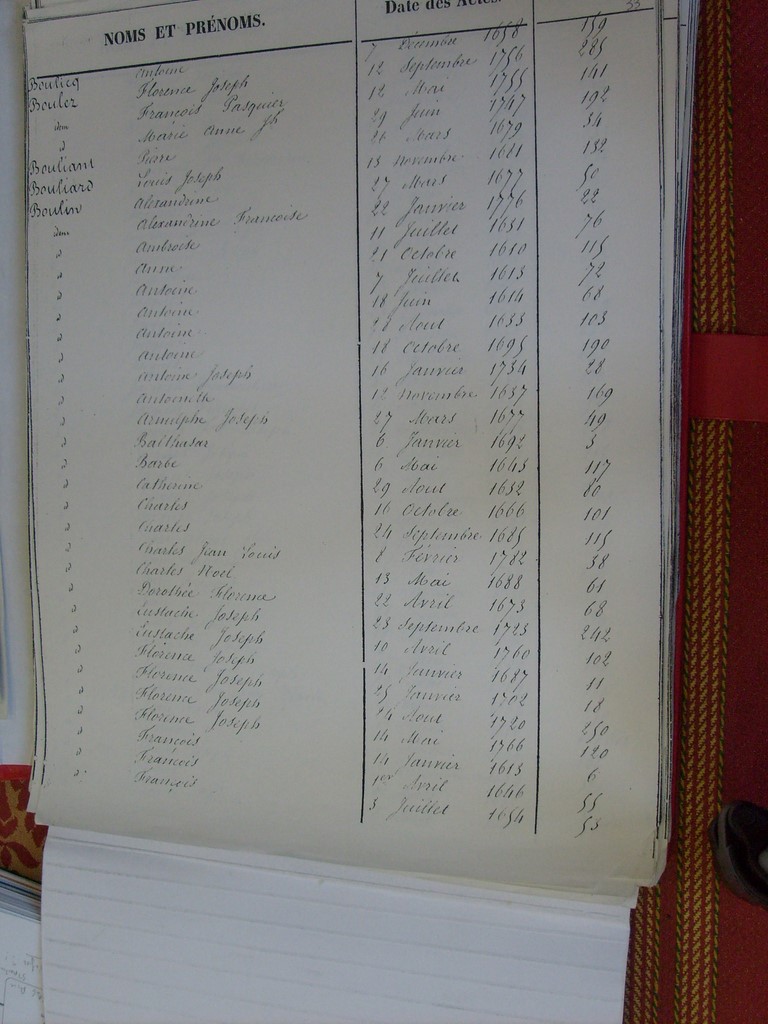 NOMS ET PRÉNOMS. Date des Actes. 33
Boulicq Antoine 7 Décembre 1658 159
Boulez Florence Joseph 12 Septembre 1756 285
idem François Pasquier 12 Mai 1755 141
d Marie Anne Jh 29 Juin 1747 192
Bouliant Pierre 26 Mars 1679 54
Bouliard Louis Joseph 13 Novembre 1681 132
Boulin Alexandrine 27 Mars 1677 50
idem Alexandrine Françoise 22 Janvier 1776 22
d Ambroise 11 Juillet 1651 76
d Anne 21 Octobre 1610 115
d Antoine 7 Juillet 1613 72
d Antoine 18 Juin 1614 68
d Antoine 28 Aout 1633 103
d Antoine 18 Octobre 1695 190
d Antoine Joseph 16 Janvier 1734 28
d Antoinette 12 Novembre 1657 169
d Arnulphe Joseph 27 Mars 1677 49
d Balthasar 6 Janvier 1692 3
d Barbe 6 Mai 1643 117
d Catherine 29 Aout 1632 80
d Charles 16 Octobre 1666 101
d Charles 24 Septembre 1685 115
d Charles Jean Louis 8 Février 1782 38
d Charles Noel 13 Mai 1688 61
d Dorothée Florence 22 Avril 1673 68
d Eustache Joseph 23 Septembre 1723 242
d Eustache Joseph 10 Avril 1760 102
d Florence Joseph 14 Janvier 1687 11
d Florence Joseph 25 Janvier 1702 18
d Florence Joseph 24 Aout 1720 250
d Florence Joseph 14 Mai 1766 120
d François 14 Janvier 1613 6
d François 1er Avril 1646 55
d François 3 Juillet 1654 53